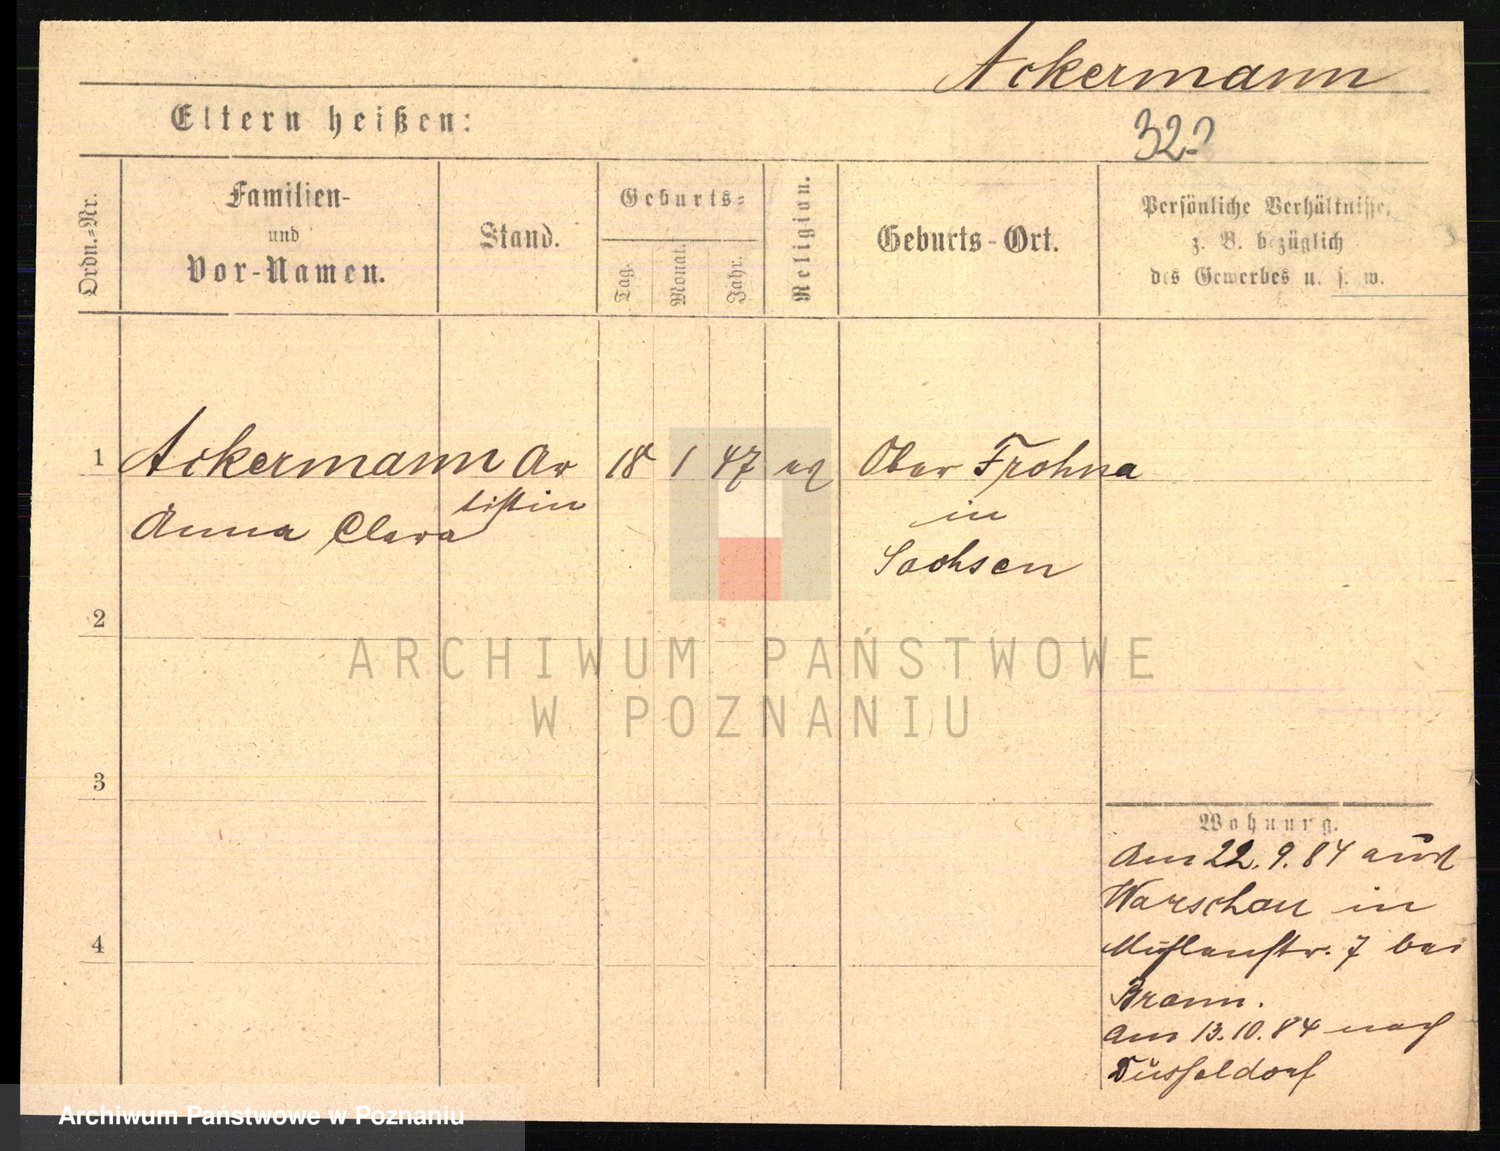 Ackermann
Eltern heißen:
Ordn.-Nr.
Familien-
und
Vor-Namen.
Stand.
Geburts-
Tag.
Monat.
Jahr.
Religion.
Geburts-Ort.
Persönliche Verhältnisse,
z. B. bezüglich
des Gewerbes u. s. w.
1 Ackermann Ar 18 1 47 Ober Frohna
tistin in
Anna Clara
Sachsen
2
ARCHIWUM PAŃSTWOWE
W POZNANIU
3
Wohnung.
Am 22.9.84 aus
Warschau in
4
Mühlenstr. 7 bei
Am 13.10.84 nach
Düsseldorf
Archiwum Państwowe w Poznaniu